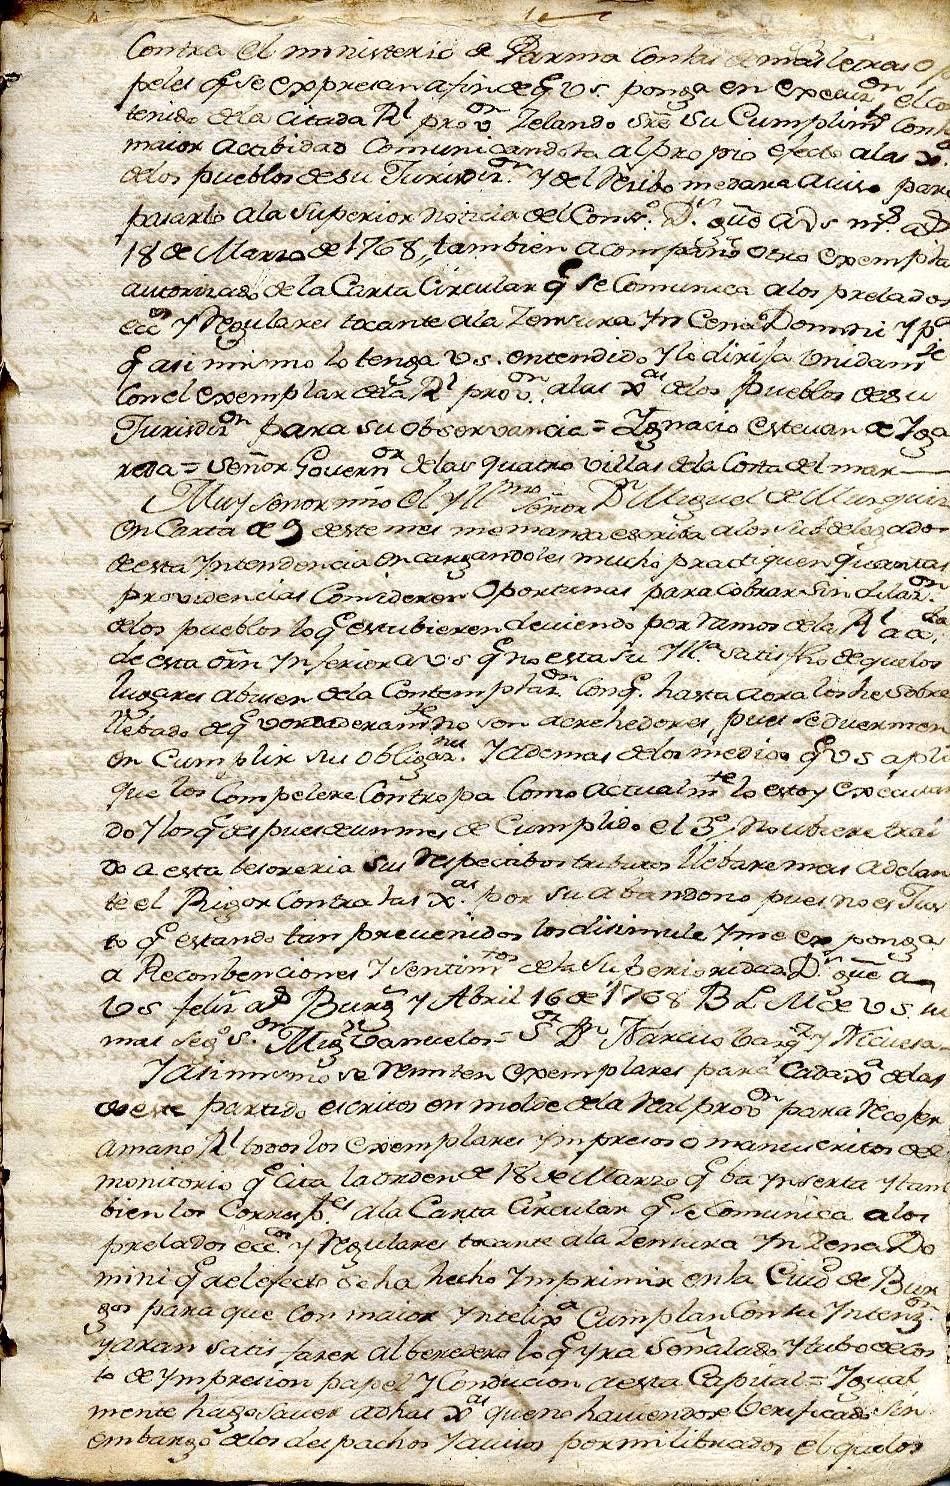 Contra el ministerio de Parma con las demas letras o pa
peles q̃ se expresan a fin de q̃ vs. ponga en execuzon el co
tenido de la citada Rl provon Zelando sre su Cumplimto con
maior actibidad comunicandola al propio efecto a las xas
de los pueblos de su Jurisdizon. y del Rezibo me dara aviso para
pasarlo a la superior noticia del Consº. Ds. gue a vs ms. as
18 de Marzo de 1768,, tambien acompaño otro exemplar
autorizado de la Carta Circular q̃ se Comunica a los prelados
eccos y Regulares tocante a la Zensura Yn Cena Domini y pa
q̃ asi mismo lo tenga vs. entendido y lo dirija unidamte
con el exemplar de la Rl provon. a las xas de los pueblos de su
Jurisdizon para su observancia = Ygnacio estevan de Yga
reda = señor Governor de las quatro villas de la Costa del mar
Muy señor mio el Yllmo señor Dn Miguel de Muzquiz
en Carta de 9 de este mes me manda escriba a los subdelegados
de esta Yntendencia encargandoles mucho practiquen quantas
providencias Consideren oportunas para cobrar sin dilazon.
de los pueblos lo q̃ estubieren deviendo por ramos de la Rl acda.
de esta orn Ynferira vs q̃ no esta su Yl.a satisfho de que los
lugares abusen de la Contemplazon. con q̃. hasta aora los he sobre
llebado de q̃ verdaderamte no son acrehedores, pues se duermen
en Cumplir sus obligaznes. y ademas de los medios q̃ vs apli
que los compelere con tropa como actualmte lo estoy executan
do y los q̃ despues de un mes de Cumplido el 3º no ubiere trai
do a esta tesoreria sus respectibos tributos llebare mas adelan
te el Rigor contra las xas. por su abandono pues no es Jus
to q̃ estando tan prevenidos los disimule y me exponga
a Reconbenciones y sentimtos de la superioridad Ds. gue a
vs felis as Burgs y Abril 16 de 1768 B L M de vs. su
mas segº s.or Migl Bañuelos = Sor Dn Narciso
Yasimismo se remiten exemplares para cada xa de las
de este partido escritos en molde de la Real provon para Recojer
a mano Rl todos los exemplares ympresos o manuscritos del
monitorio q̃ cita la orden de 18 de Marzo q̃ ba ynserta y tam
bien los Corresptes a la Carta Circular q̃ se comunica a los
prelados eccos. y Regulares tocante a la Zensura Yn Zena Do
mini q̃ al efecto se ha hecho Ymprimir en la Ciud de Bur
gos para que con maior Yntelixa Cumplan con su Yntenzon.
y aran satisfazer al beredero lo q̃ yra señalado y tubo de cos
to de ympresion papel y Conducion a esta Capital = Ygual
mente hago saver a dhas xas que no haviendose berificado sin
embargo de los despachos y avisos por mi librados el que los